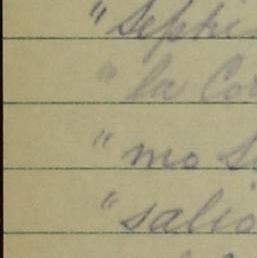 " Septi
" la Co
" mo S
" salio